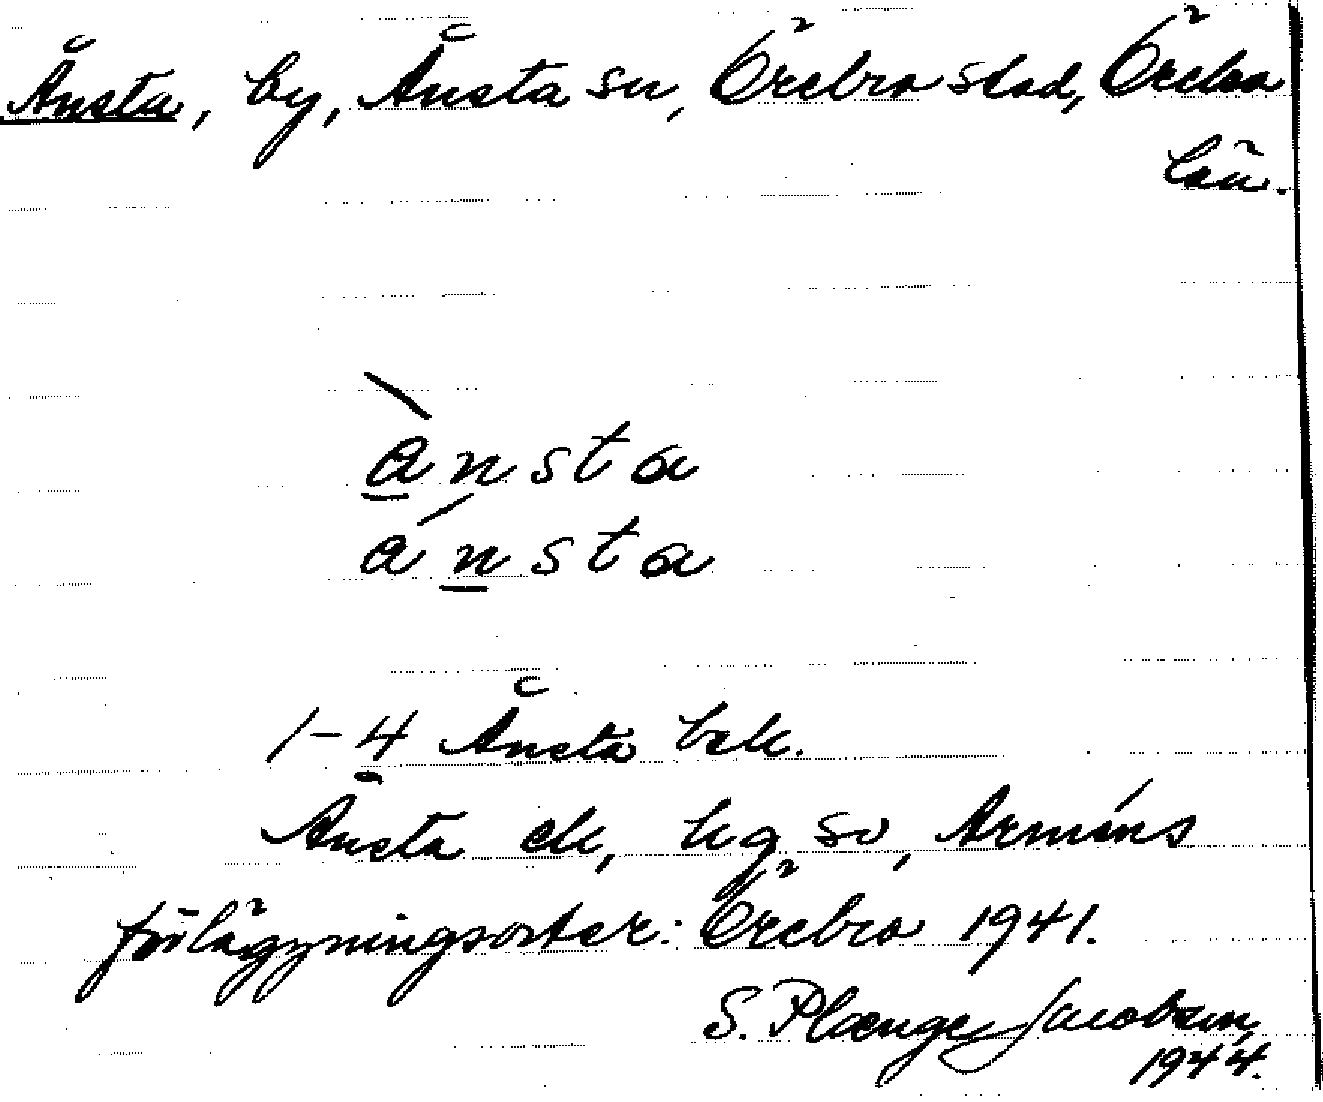 Ånsta, by, Ånsta sn, Örebro stad, Örebro
län.
ànsta
ánsta
1-4 Ånsta bek.
Ånsta ek, hg sv, Arméns
förläggningsorter: Örebro 1941.
S. Plænge Jacobsen,
1944.